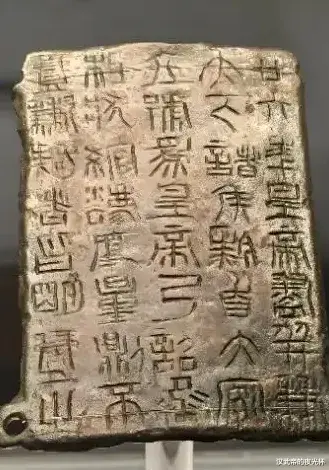 廿六年皇帝盡并兼
天下諸侯黔首大安
立號為皇帝乃詔丞
相狀綰灋度量則不
壹歉疑者皆明壹之
汉武帝的夜光杯